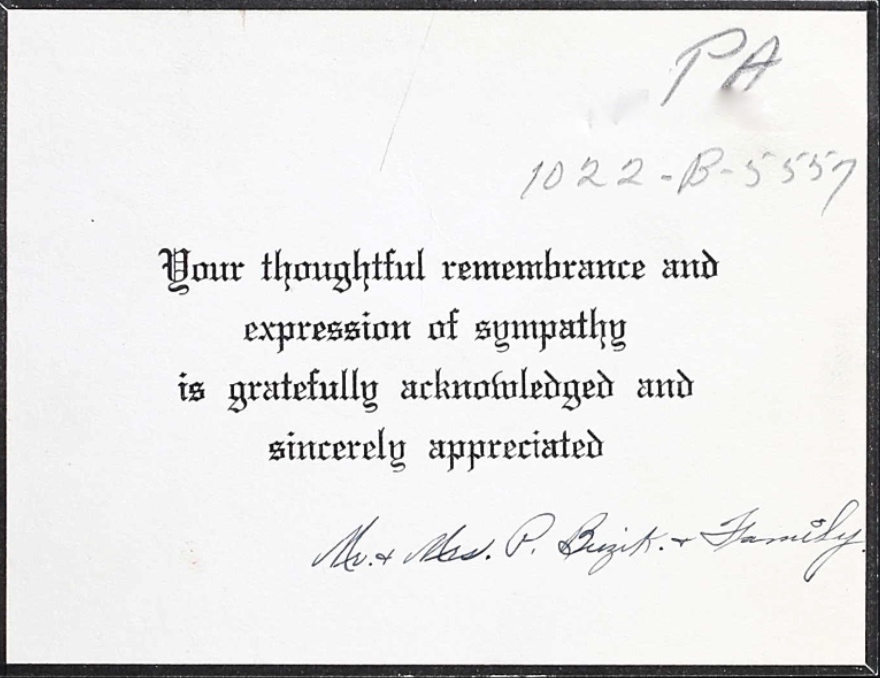 PA
1022-B-5557
Your thoughtful remembrance and
expression of sympathy
is gratefully acknowledged and
sincerely appreciated
Mr. + Mrs. P. Buzik. + Family.